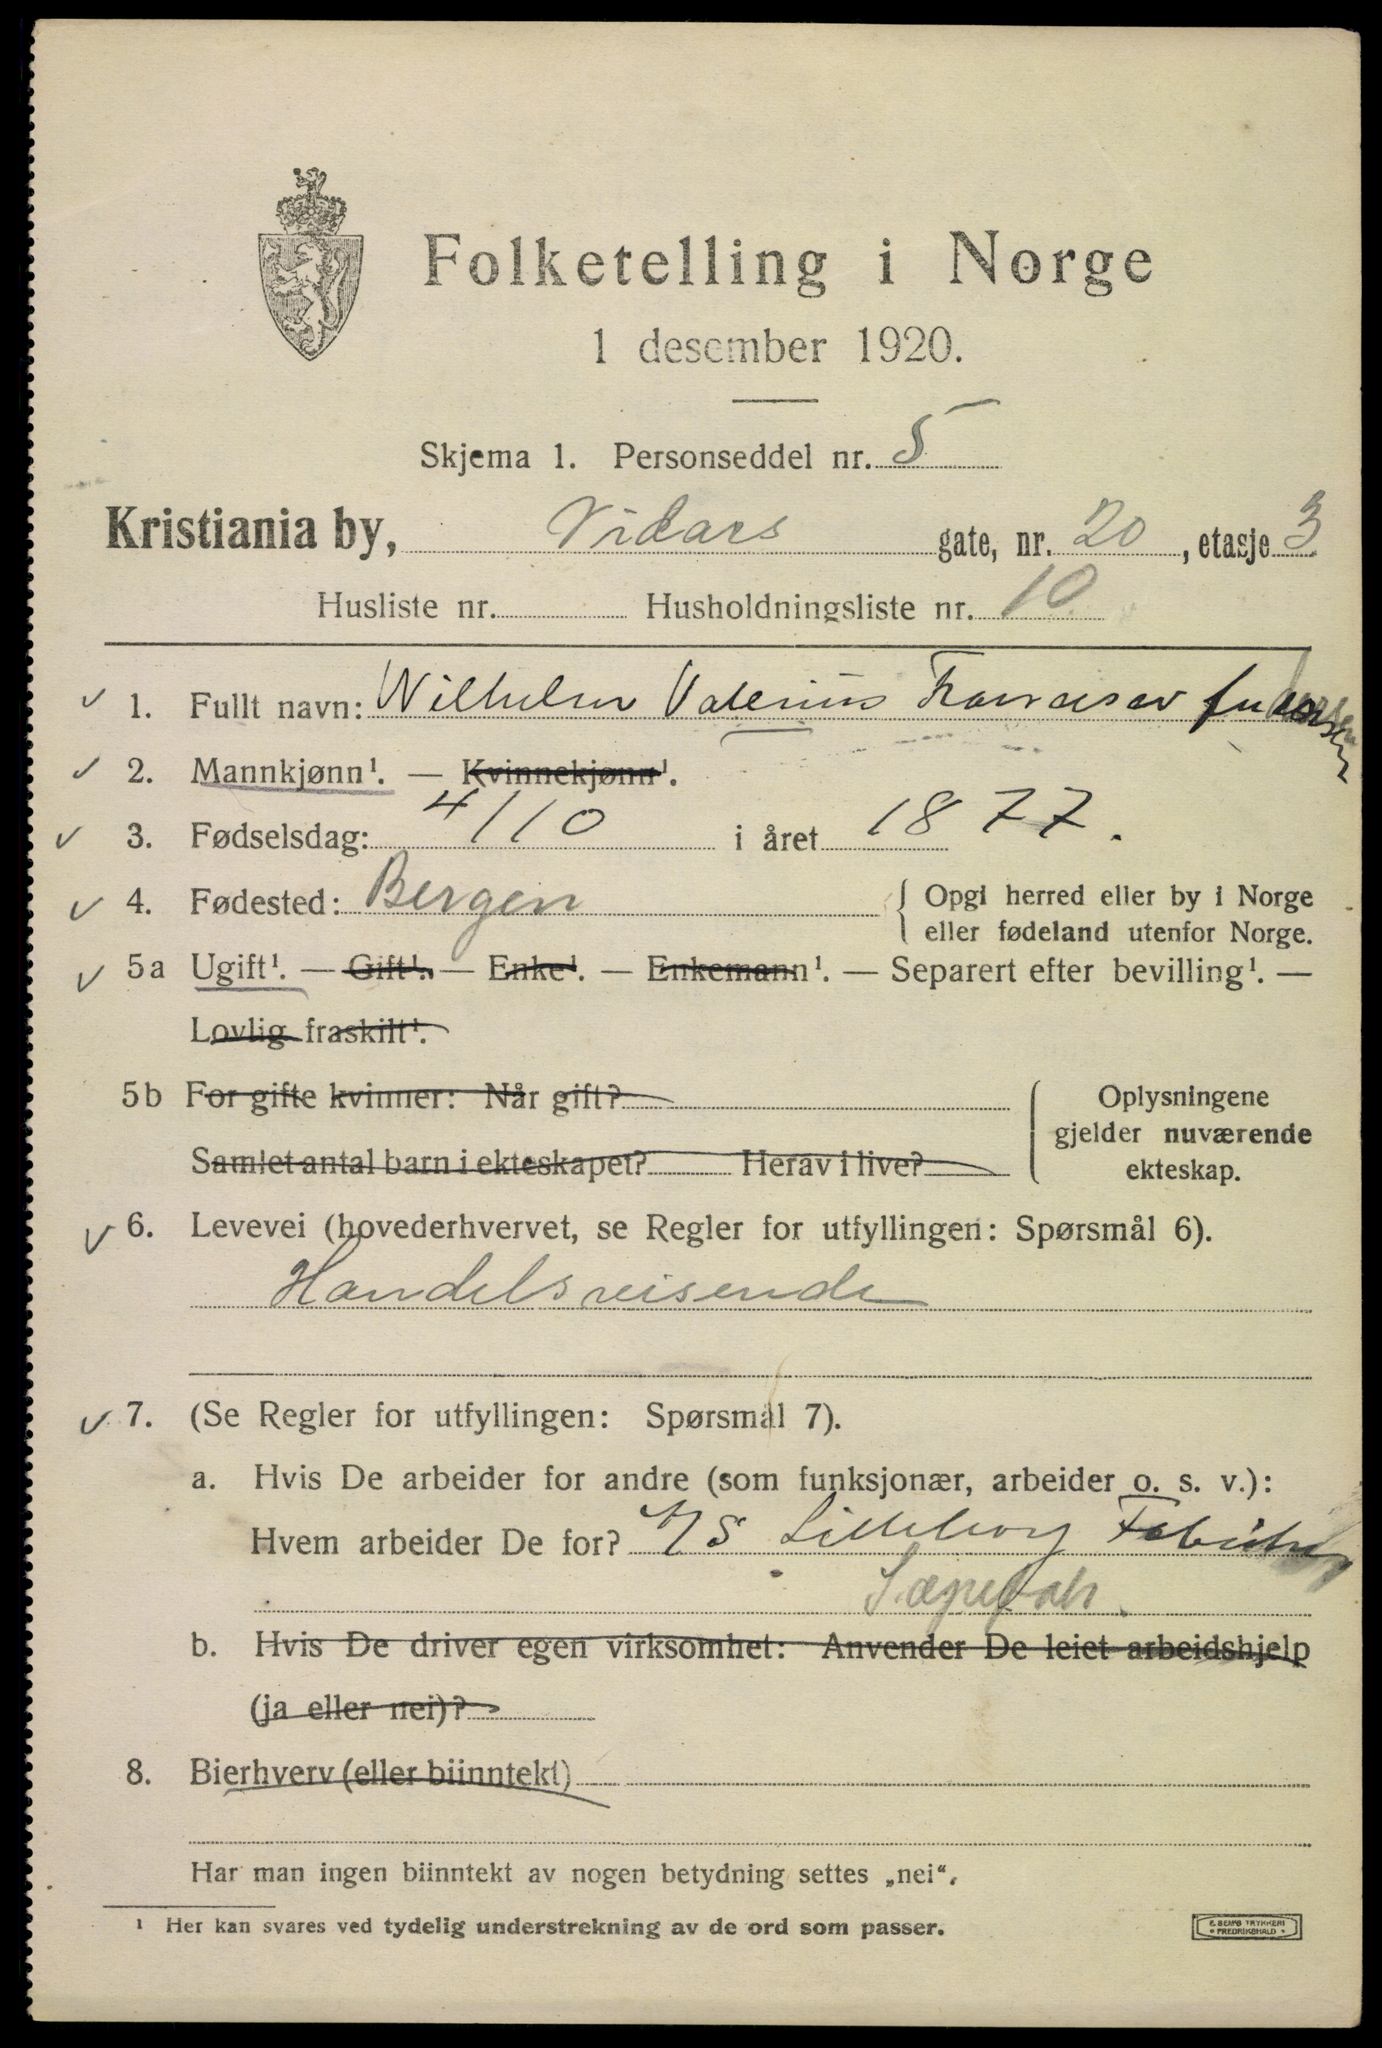 Folketelling i Norge
1 desember 1920.
Skjema 1. Personseddel nr. 5
Kristiania by, Vidars gate, nr. 20, etasje 3
Husliste nr. Husholdningsliste nr. 10
✓ 1. Fullt navn: Wilhelm Valerius
✓ 2. Mannkjønn¹. — Kvinnekjønn¹.
✓ 3. Fødselsdag: 4/10 i året 1877.
✓ 4. Fødested: Bergen { Opgi herred eller by i Norge
eller fødeland utenfor Norge.
✓ 5a Ugift¹. — Gift¹. — Enke¹. — Enkemann¹. — Separert efter bevilling¹. —
Lovlig fraskilt¹.
5b For gifte kvinner: Når gift? { Oplysningene
gjelder nuværende
Samlet antal barn i ekteskapet? Herav i live?
ekteskap.
✓ 6. Levevei (hovederhvervet, se Regler for utfyllingen: Spørsmål 6).
Handelsreisende
✓ 7. (Se Regler for utfyllingen: Spørsmål 7).
a. Hvis De arbeider for andre (som funksjonær, arbeider o. s. v.):
Hvem arbeider De for? A/S Lilleborg Fabriker
Sæpefab.
b. Hvis De driver egen virksomhet: Anvender De leiet arbeidshjelp
(ja eller nei)?
8. Bierhverv (eller biinntekt)
Har man ingen biinntekt av nogen betydning settes „nei“.
¹ Her kan svares ved tydelig understrekning av de ord som passer.
E. SEMS TRYKKERI
• FREDRIKSHALD •